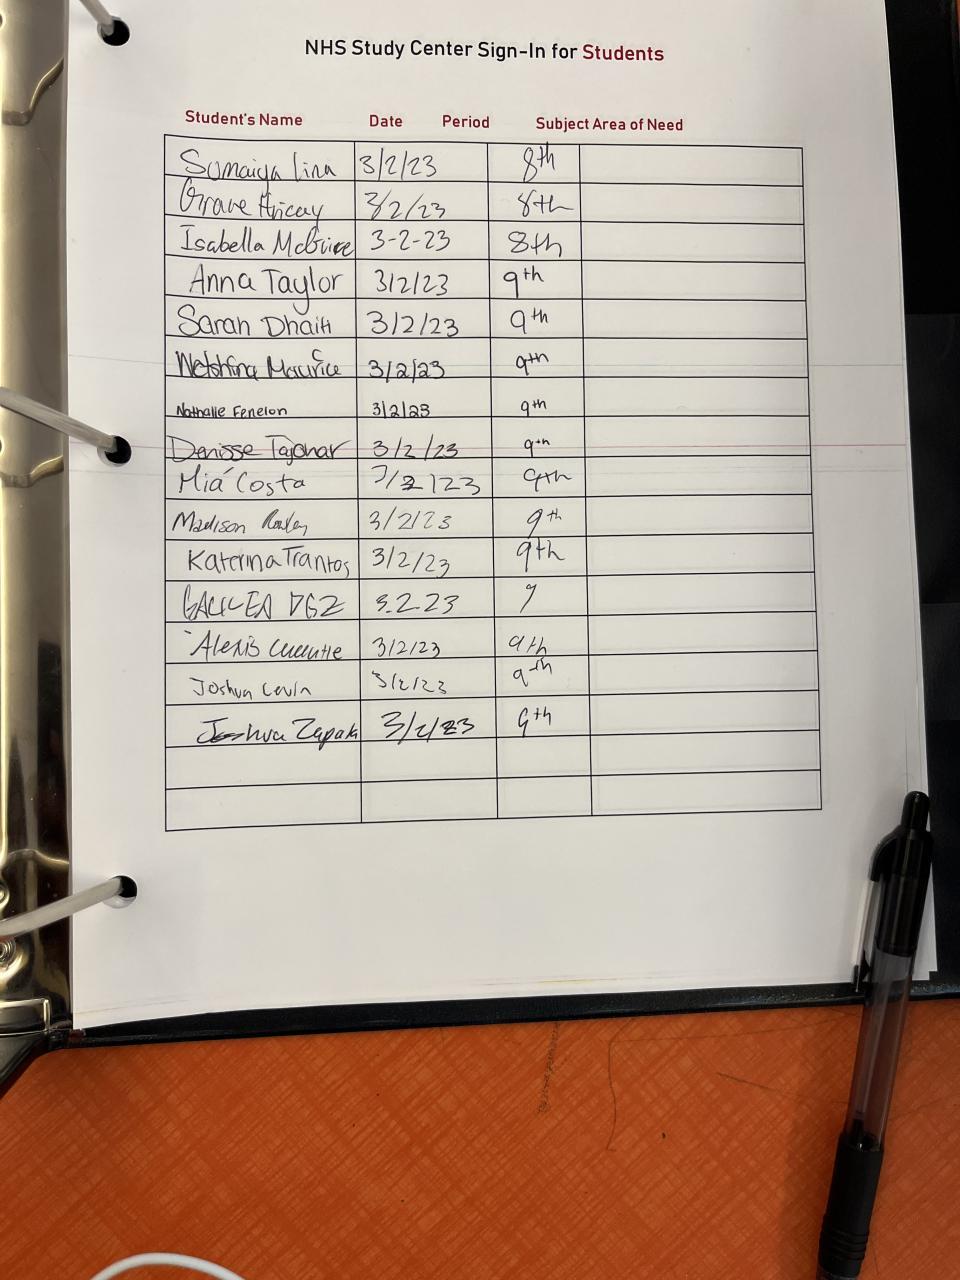 NHS Study Center Sign-In for Students
Student's Name Date Period Subject Area of Need
Sumaiya Lina 3/2/23 8th
3/2/23 8th
Isabella McGuire 3-2-23 8th
Anna Taylor 3/2/23 9th
Sarah Dhaiti 3/2/23 9th
Maurice 3/2/23 9th
Nathalie Fenelon 3/2/23 9th
Denisse 3/2/23 9th
Mia Costa 3/2/23 9th
Madison 3/2/23 9th
Katerina Trantos 3/2/23 9th
GALILEA DGZ 3.2.23 9
Alexis 3/2/23 9th
Joshua Cevin 3/2/23 9th
Joshua Zapata 3/2/23 9th